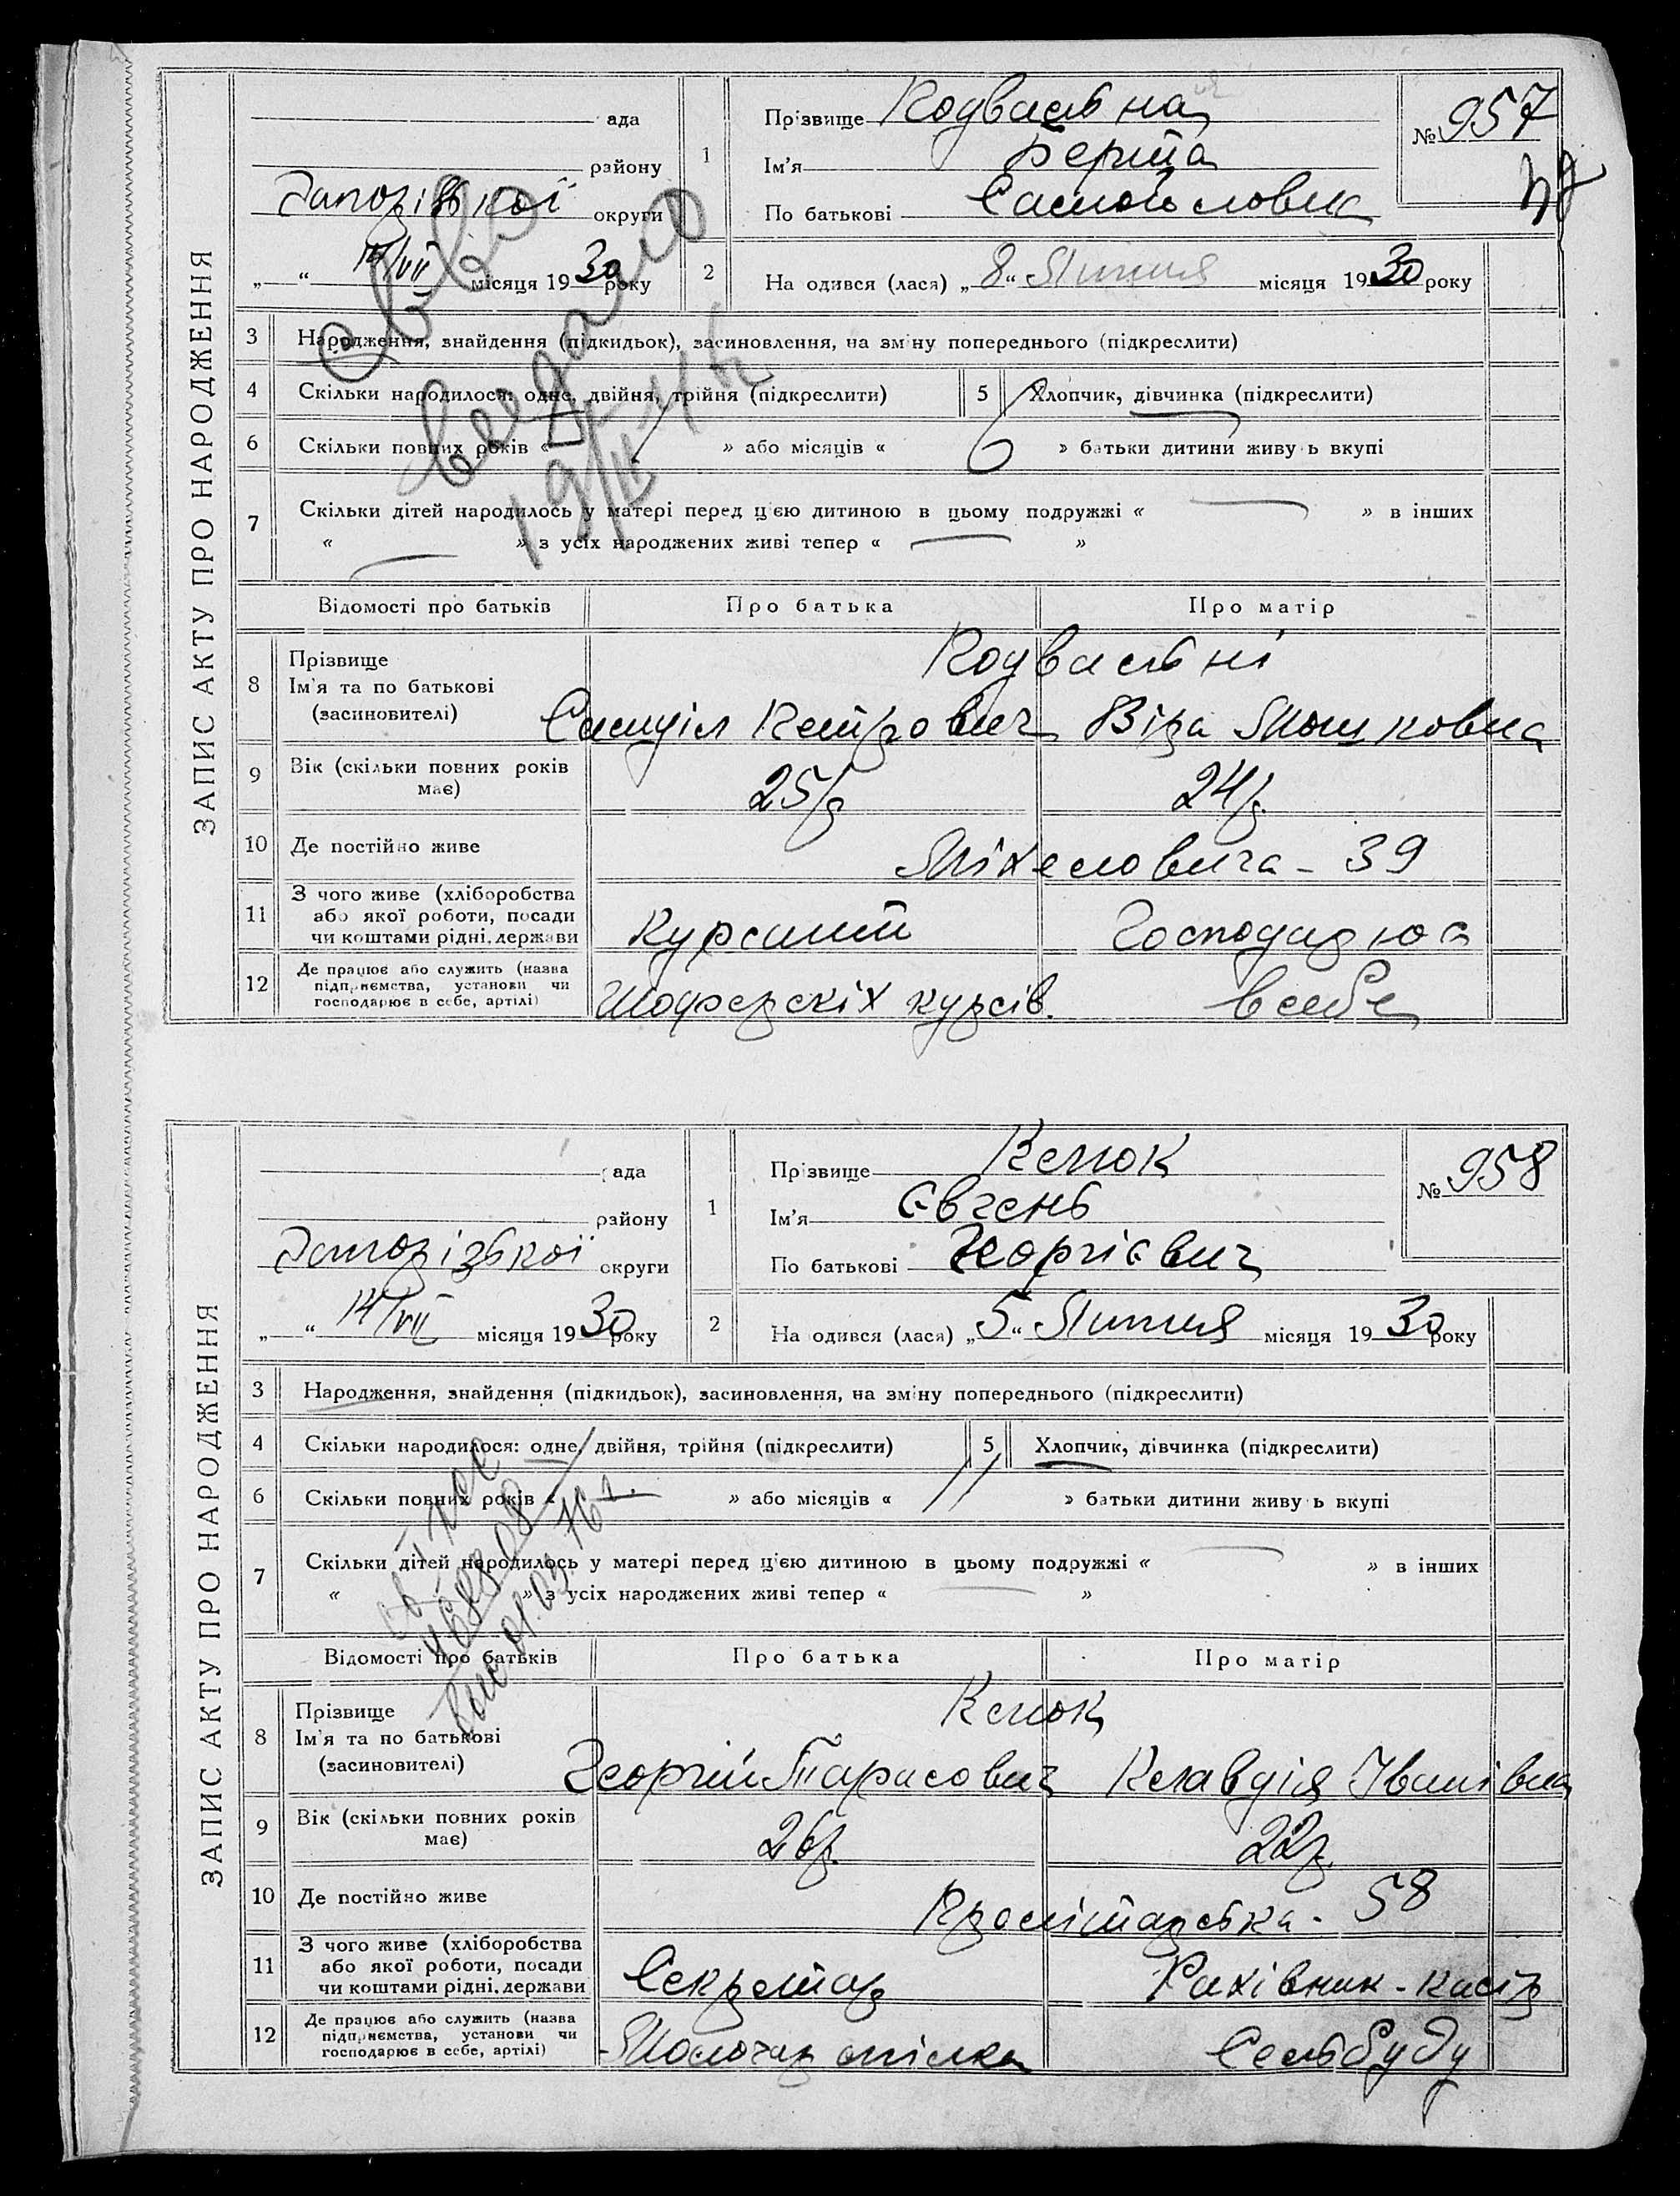 ЗАПИС АКТУ ПРО НАРОДЖЕННЯ
ада
району
округи
14/VII місяця 1930 року
1
Прізвище
Ім'я Берта
По батькові Самойловна
№ 957
2
На одився (лася) „8“ Липня місяця 1930 року
3 Народження, знайдення (підкидьок), засиновлення, на зміну попереднього (підкреслити)
4 Скільки народилося: одне, двійня, трійня (підкреслити) 5 Хлопчик, дівчинка (підкреслити)
6 Скільки повних років « » або місяців « » батьки дитини живу ь вкупі
7 Скільки дітей народилось у матері перед ц'єю дитиною в цьому подружжі « » в інших
« » з усіх народжених живі тепер « »
Відомості про батьків Про батька Про матір
8 Прізвище
Ім'я та по батькові
(засиновителі)
Самуіл Петрович Віра
9 Вік (скільки повних років має) 25 р 24 р.
10 Де постійно живе 39
11 З чого живе (хліборобства або якої роботи, посади чи коштами рідні, держави Курсант
12 Де працює або служить (назва підприємства, установи чи господарює в себе, артілі) Шоферскіх курсів. в себе
ЗАПИС АКТУ ПРО НАРОДЖЕННЯ
ада
району
Запорізької округи
14/VII місяця 1930 року
1
Прізвище Клюк
Ім'я Євгень
По батькові Георгієвич
№ 958
2
На одився (лася) „5“ Липня місяця 1930 року
3 Народження, знайдення (підкидьок), засиновлення, на зміну попереднього (підкреслити)
4 Скільки народилося: одне, двійня, трійня (підкреслити) 5 Хлопчик, дівчинка (підкреслити)
6 Скільки повних років « » або місяців « » батьки дитини живу ь вкупі
7 Скільки дітей народилось у матері перед ц'єю дитиною в цьому подружжі « » в інших
« » з усіх народжених живі тепер « »
Відомості про батьків Про батька Про матір
8 Прізвище
Ім'я та по батькові
(засиновителі)
Клюк
Георгій Тарасович Клавдія Іванівна
9 Вік (скільки повних років має) 26 р. 22 р.
10 Де постійно живе 58
11 З чого живе (хліборобства або якої роботи, посади чи коштами рідні, держави Секретар Рахівник-касір
12 Де працює або служить (назва підприємства, установи чи господарює в себе, артілі) Молочар спілка Сельбуду